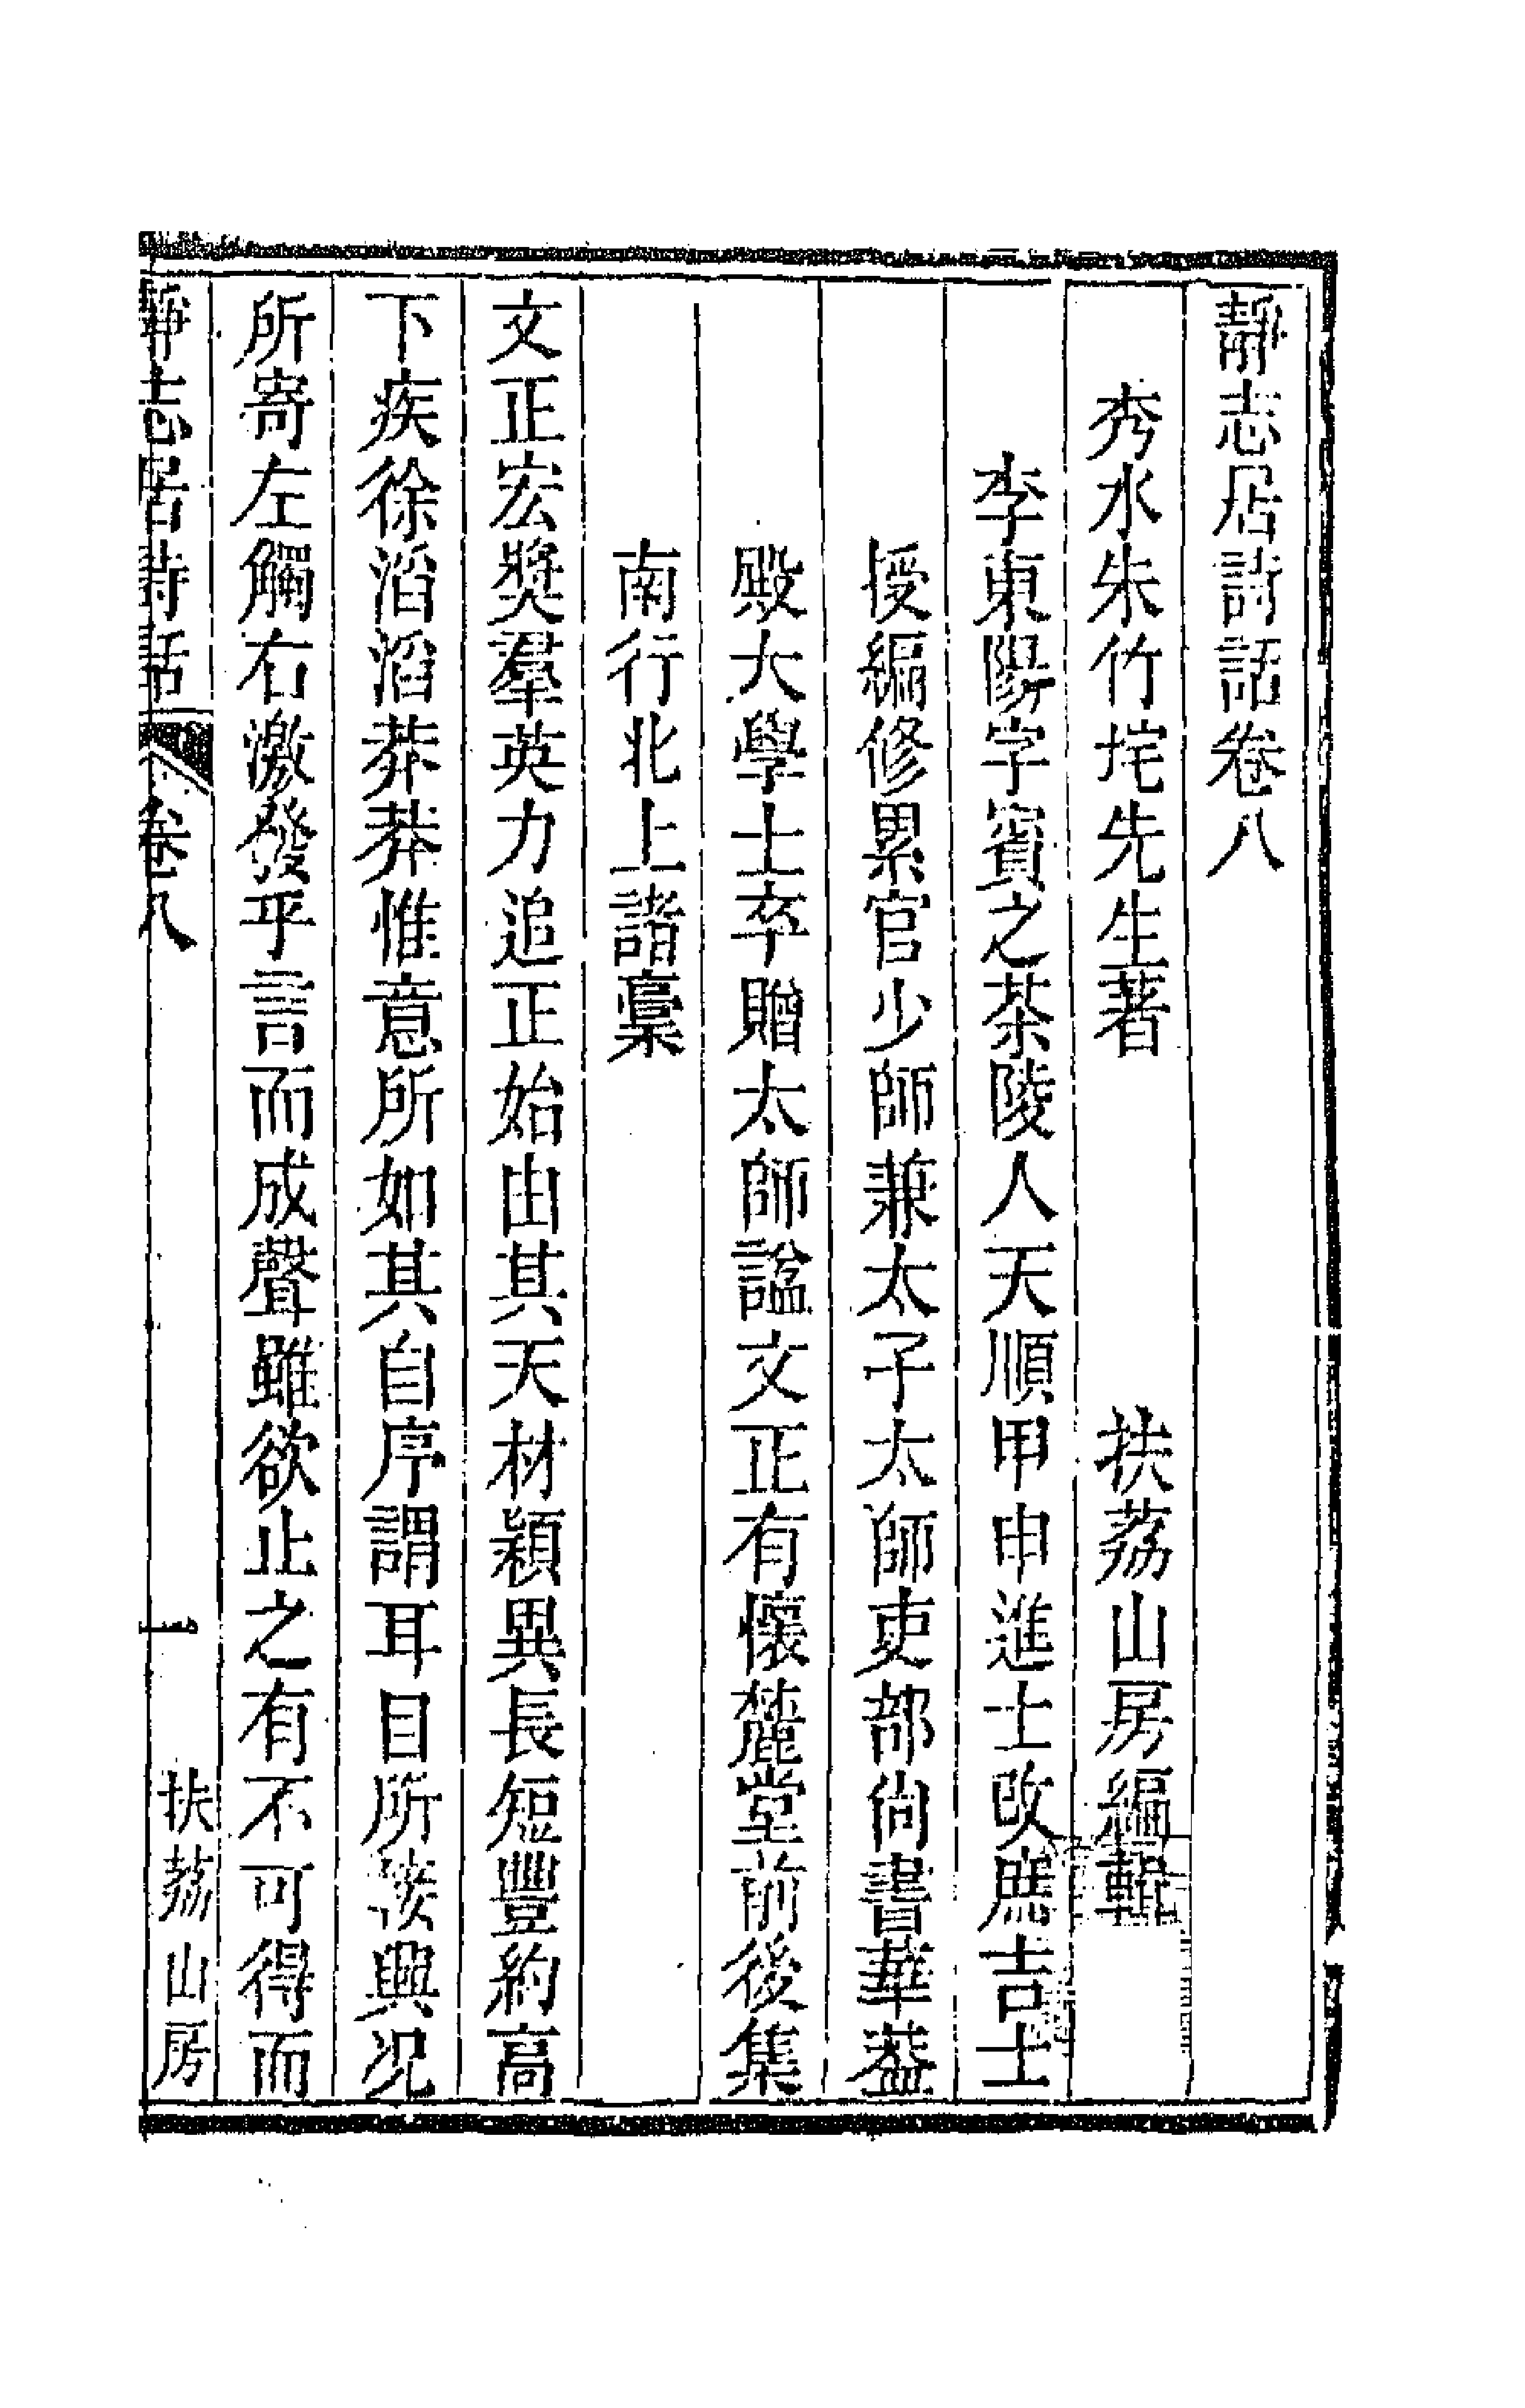 靜志居詩話卷八
秀水朱竹垞先生著 扶荔山房編輯
李東陽字賓之茶陵人天順甲申進士改庶吉士
授編修累官少師兼太子太師吏部尙書華蓋
殿大學士卒贈太師諡文正有懷麓堂前後集
南行北上諸稾
文正宏奬羣英力追正始由其天材穎異長短豐約高
下疾徐滔滔莽莽惟意所如其自序謂耳目所接興況
所寄左觸右激發乎言而成聲雖欲止之有不可得而
靜志居詩話 卷八 一 扶荔山房